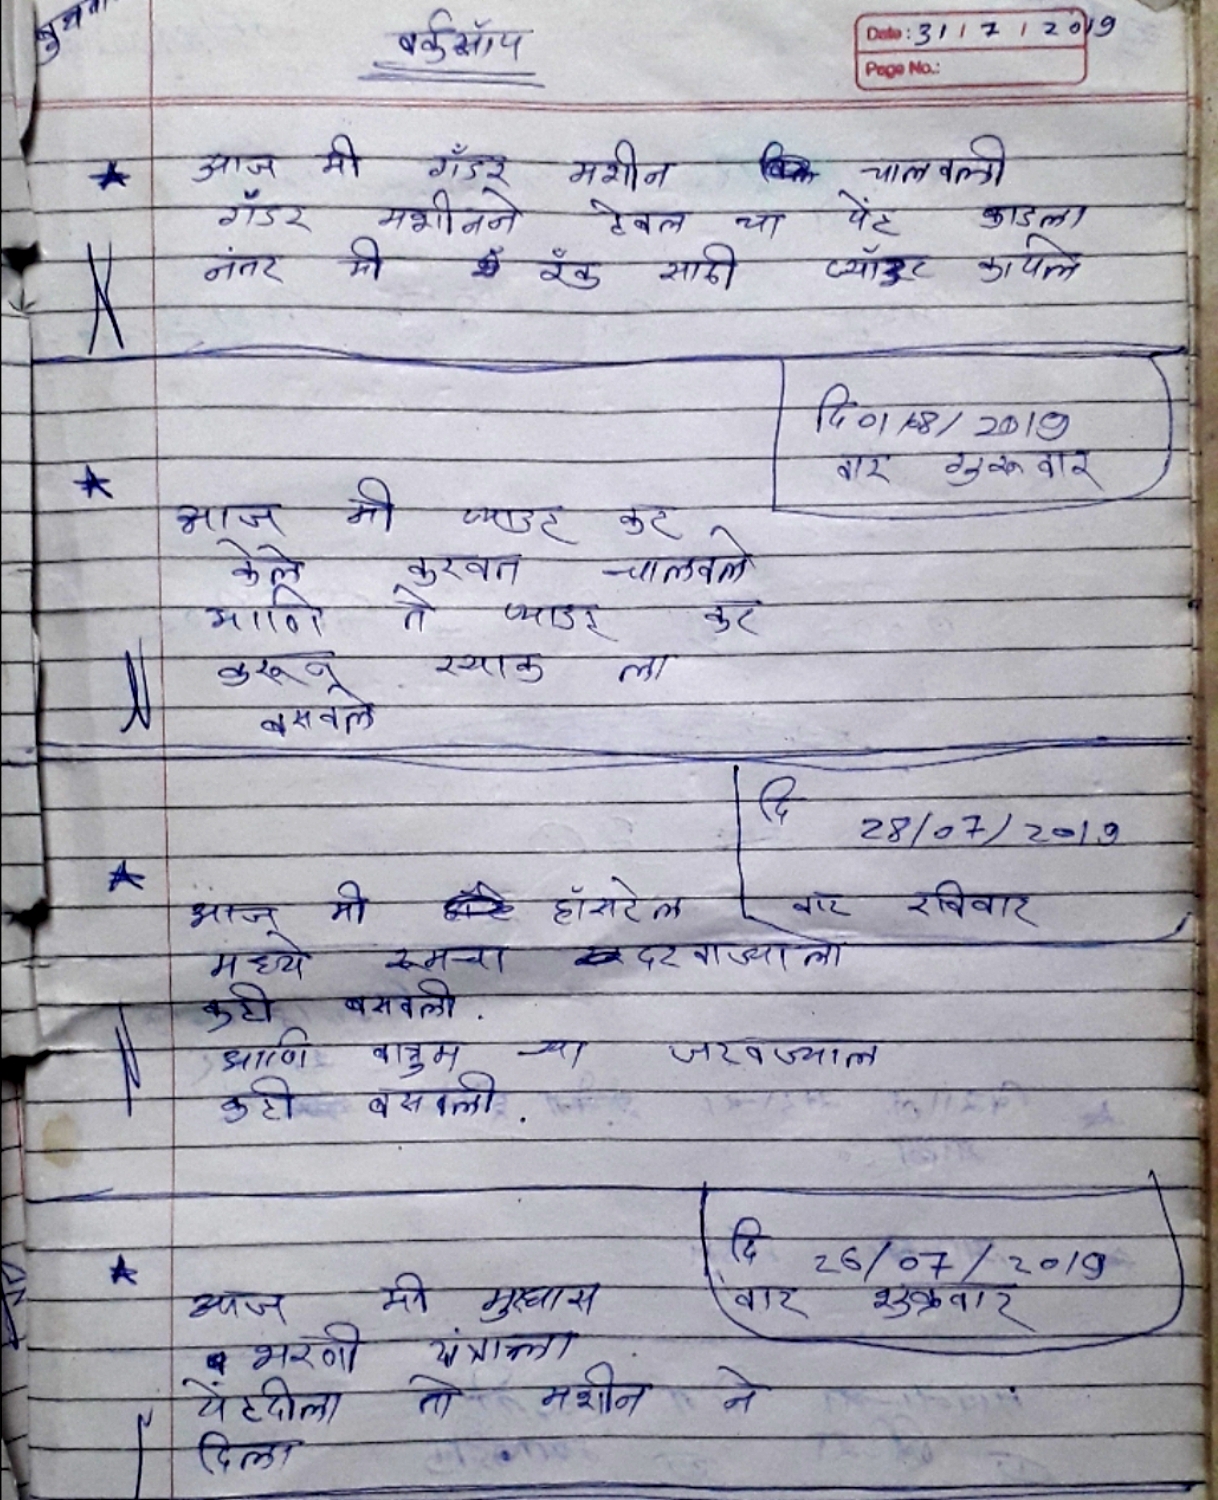 वर्कसॉप
Date: 31 / 7 / 2019
Page No.:
आज मी गँडर मशीन चालवली
गँडर मशीनने टेबल चा पेंट काडला
नंतर मी रँक साठी प्याँईट कापले
दि 01/08/2019
वार गुरूवार
आज मी प्याइट कट
केले करवत चालवले
आणि ते प्याइट कट
करून रयाक ला
बसवले
दि 28/07/2019
आज मी हॉसटेल वार रविवार
मध्ये रूमचा दरवाज्याला
कडी बसवली.
आणि बात्रुम च्या जरवज्याल
कडी बसवली.
दि 26/07/2019
वार शुक्रवार
आज मी मुरघास
भरणी यंत्राला
पेंटदीला तो मशीन ने
दिला